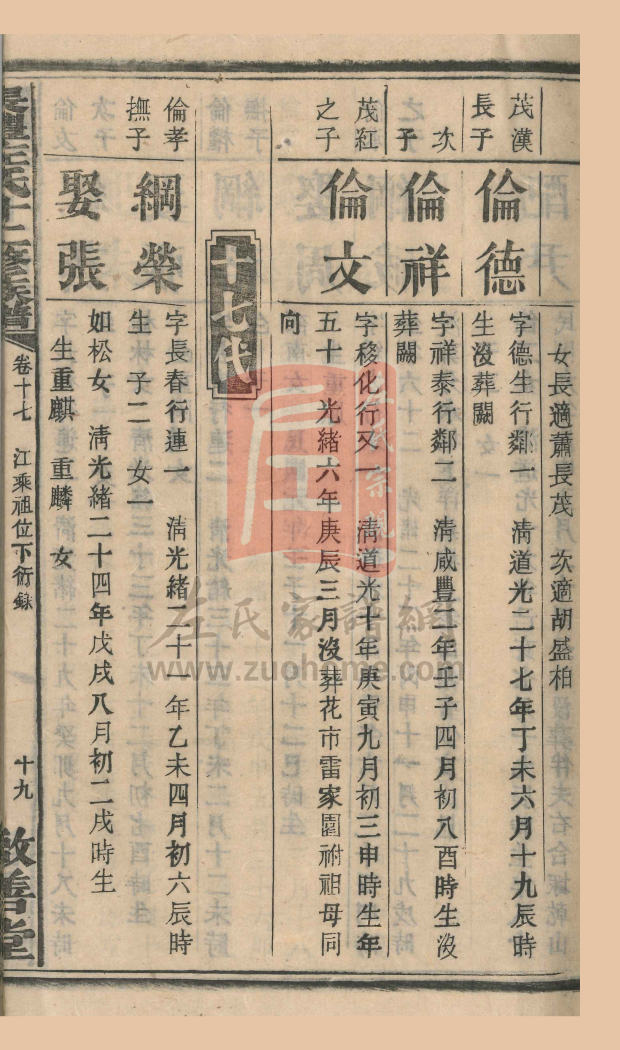 女長適蕭長茂　次適胡盛柏
茂漢
長子
倫德
字德生行鄰一　清道光二十七年丁未六月十九辰時
生沒葬闕
次
子
倫祥
字祥泰行鄰二　清咸豐二年壬子四月初八酉時生沒
葬闕
茂紅
之子
倫文
字移化行又一　清道光十年庚寅九月初三申時生年
五十　光緒六年庚辰三月沒葬花市雷家園祔祖母同
向
十七代
倫孝
撫子
綱榮
字長春行連一　清光緒二十一年乙未四月初六辰時
生　子二　女一
娶張
如松女　清光緒二十四年戊戌八月初二戌時生
生重麒　重麟　女
左氏十二修族譜
卷十七　江乘祖位下衍錄
十九　敦善堂
左氏家譜網
www.zuohome.com